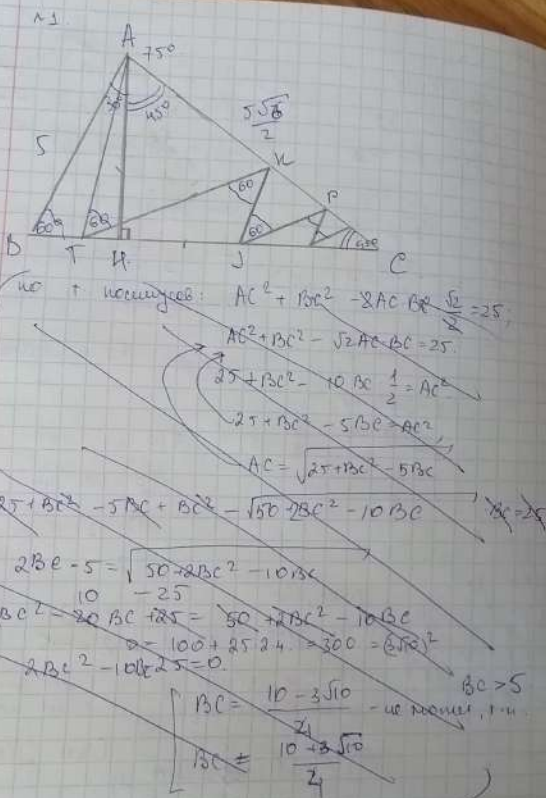 №1.
A 75°
30° 45°
5√6
2
5
K
60
P
60° 60 60 45°
B T H J C
по т косинусов: AC² + BC² - 2AC·BC √2/2 = 25;
AC² + BC² - √2 AC·BC = 25.
25 + BC² - 10 BC · 1/2 = AC²
25 + BC² - 5BC = AC²,
AC = √25 + BC² - 5BC
25 + BC² - 5BC + BC² - √50 + 2BC² - 10BC BC = 25
2BC - 5 = √50 + 2BC² - 10BC
10 - 25
BC² - 20 BC + 25 = 50 + 2BC² - 10BC
= 100 + 25·2·4 = 300 = (3√10)²
2BC² - 10BC - 25 = 0.
BC > 5
BC = 10 - 3√10 / 4 - не может, т.к.
BC = 10 + 3√10 / 4